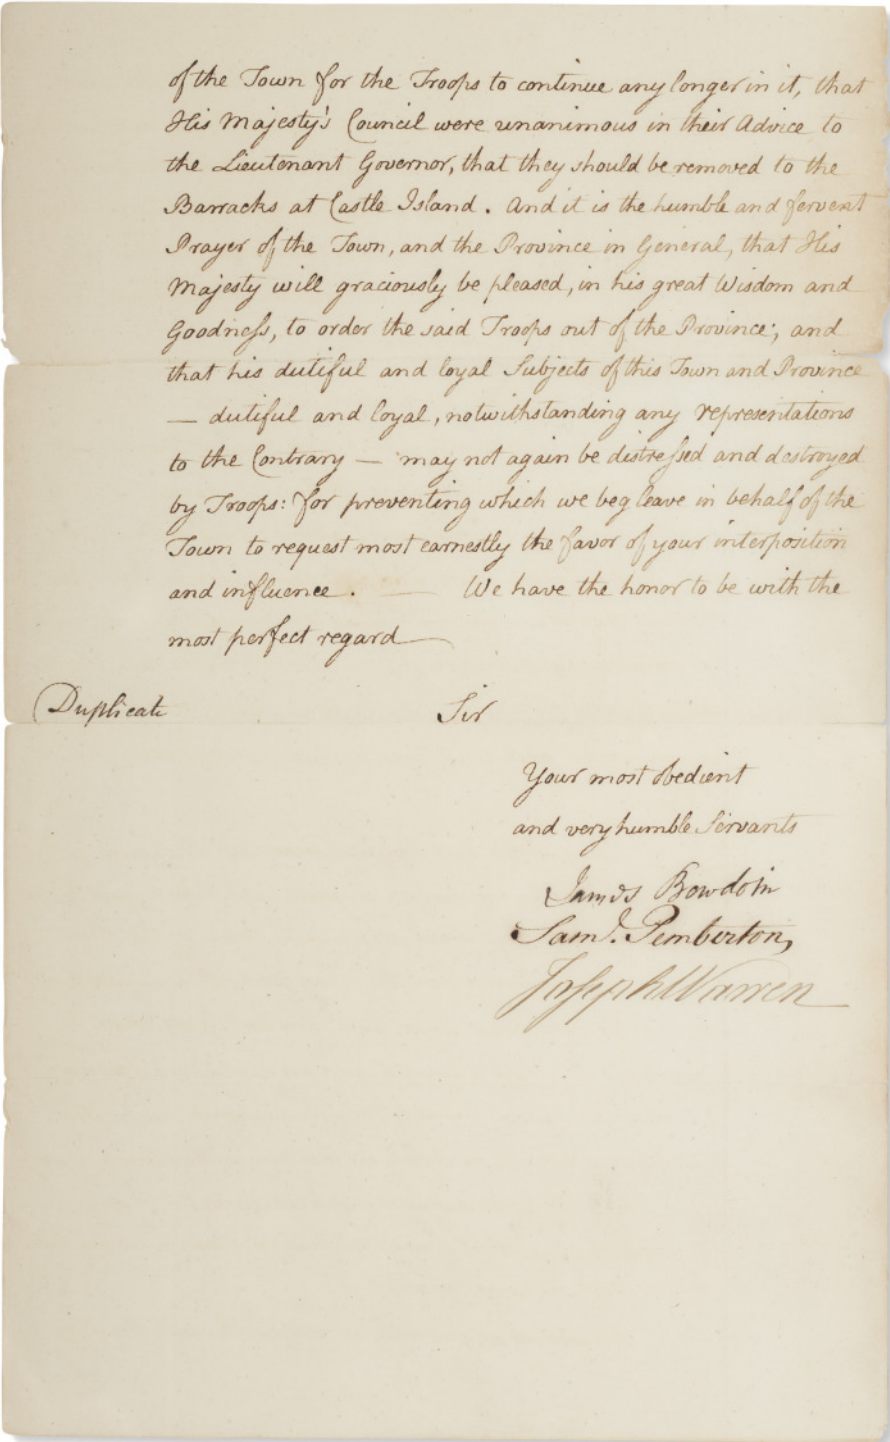 of the Town for the Troops to continue any longer in it, that
His Majesty's Council were unanimous in their Advice to
the Lieutenant Governor, that they should be removed to the
Barracks at Castle Island. And it is the humble and fervent
Prayer of the Town, and the Province in General, that His
Majesty will graciously be pleased, in his great Wisdom and
Goodness, to order the said Troops out of the Province; and
that his dutiful and loyal Subjects of this Town and Province
— dutiful and loyal, notwithstanding any representations
to the Contrary — may not again be distressed and destroyed
by Troops: for preventing which we beg leave in behalf of the
Town to request most earnestly the favor of your interposition
and influence. — We have the honor to be with the
most perfect regard —
(Duplicate
Sir
Your most obedient
and very humble Servants
James Bowdoin
Sam̲l. Pemberton,
Joseph Warren